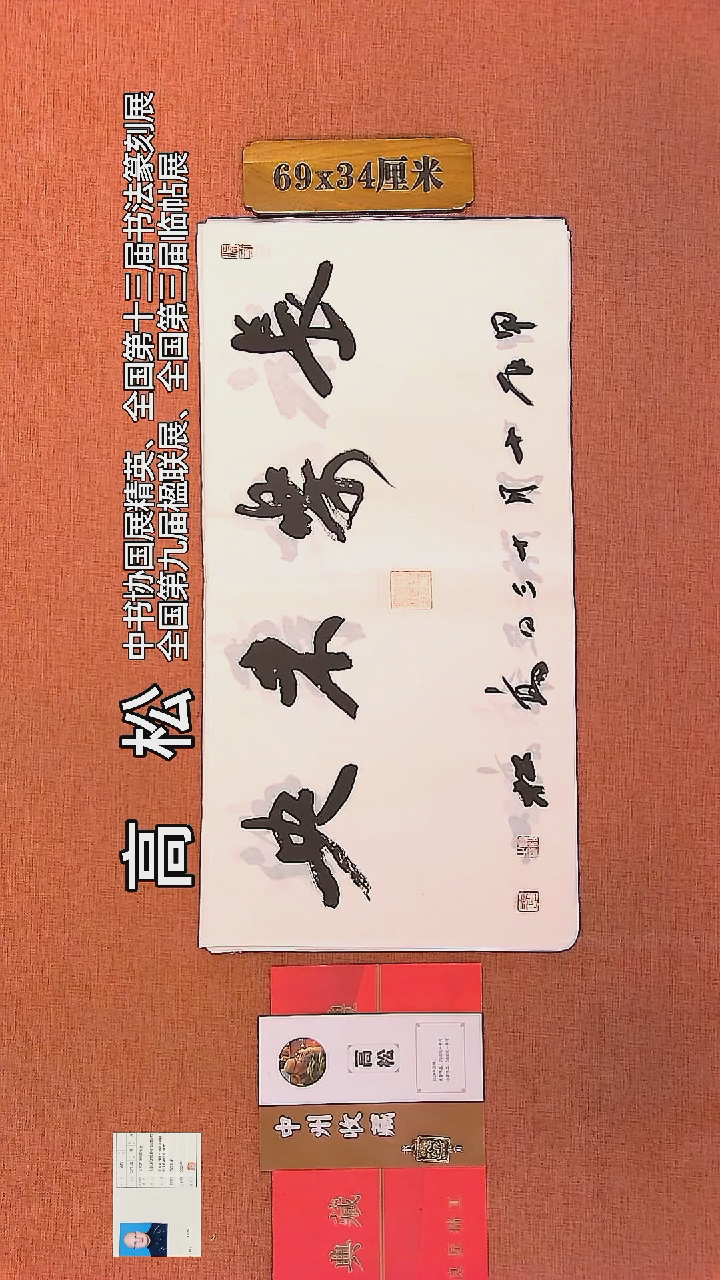 69x34厘米
中书协国展精英、全国第十三届书法篆刻展
全国第九届楹联展、全国第三届临帖展
高 松
长樂未央
甲辰十月廿三日高松
高松
中州收藏
典藏